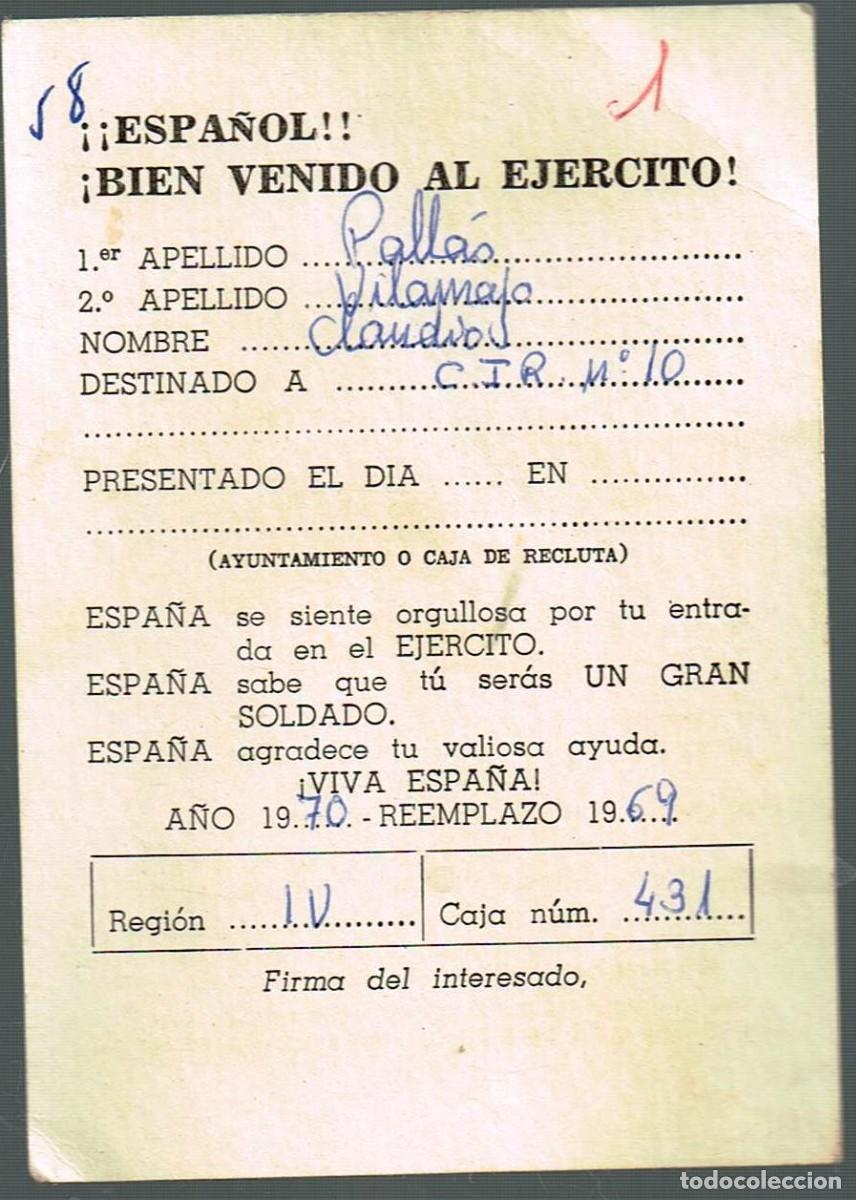 58
1
¡¡ESPAÑOL!!
¡BIEN VENIDO AL EJERCITO!
1.er APELLIDO ........ Pallás ........
2.º APELLIDO ........ Vilamajo ........
NOMBRE ........ Claudio ........
DESTINADO A ........ C.I.R. nº 10 ........
PRESENTADO EL DIA ...... EN ..............
(AYUNTAMIENTO O CAJA DE RECLUTA)
ESPAÑA se siente orgullosa por tu entra-
da en el EJERCITO.
ESPAÑA sabe que tú serás UN GRAN
SOLDADO.
ESPAÑA agradece tu valiosa ayuda.
¡VIVA ESPAÑA!
AÑO 1970 - REEMPLAZO 1969
Región ...... IV ...... Caja núm. ...... 431 ......
Firma del interesado,
todocoleccion